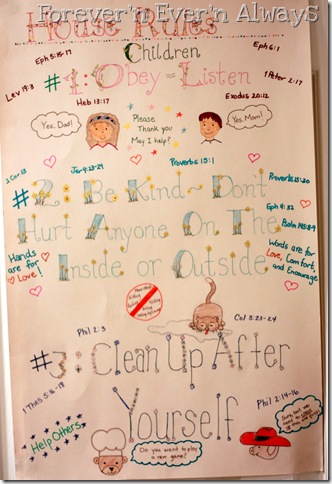 Forever'n Ever'n AlwayS
House Rules
Eph 5:15-17
Children
Eph 6:1
Lev 19:3
#1: Obey = Listen
1 Peter 2:17
Heb 13:17
Exodus 20:12
Yes, Dad!
Please
Thank you
May I help?
Yes Mom!
1 Cor 13
Jer 9:23-24
Proverbs 15:1
Proverbs 15:30
#2: Be Kind - Dont
Eph 4:32
Hurt Anyone On The
Psalm 145:8-9
Hands are for Love!
Inside or Outside
Words are for Love, Comfort, and Encourage
Phil 2:3
Col 3:23-24
#3: Clean Up After
1 Thes 5:16-18
Yourself
Phil 2:14-16
Help Others
Do you want to play a new game?